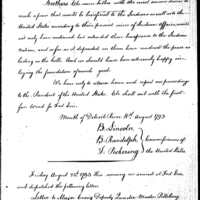 Brothers We were better with the most sincere desire to
make a peace that would be beneficial to the Indians as well as to the
United States according to their present views of Indian affairs, would
not only have restored but extended their
nations, and so far as it depended on them have rendered the peace as
lasting as the hills. And we should have been extremely happy in
laying the foundation of such good.
We have only to return home and report our proceedings
to the President of the United States. We shall wait until the first
fair wind for Fort Erie.
Mouth of Detroit River 16th August 1793
B. Lincoln
B. Randolph
T. Pickering
Commissioners of
the United States
Friday August 23d 1793 This morning we arrived at Fort Erie
and dispatched the following letter
Letter to Major Craig Deputy Quarter Master Pittsburg